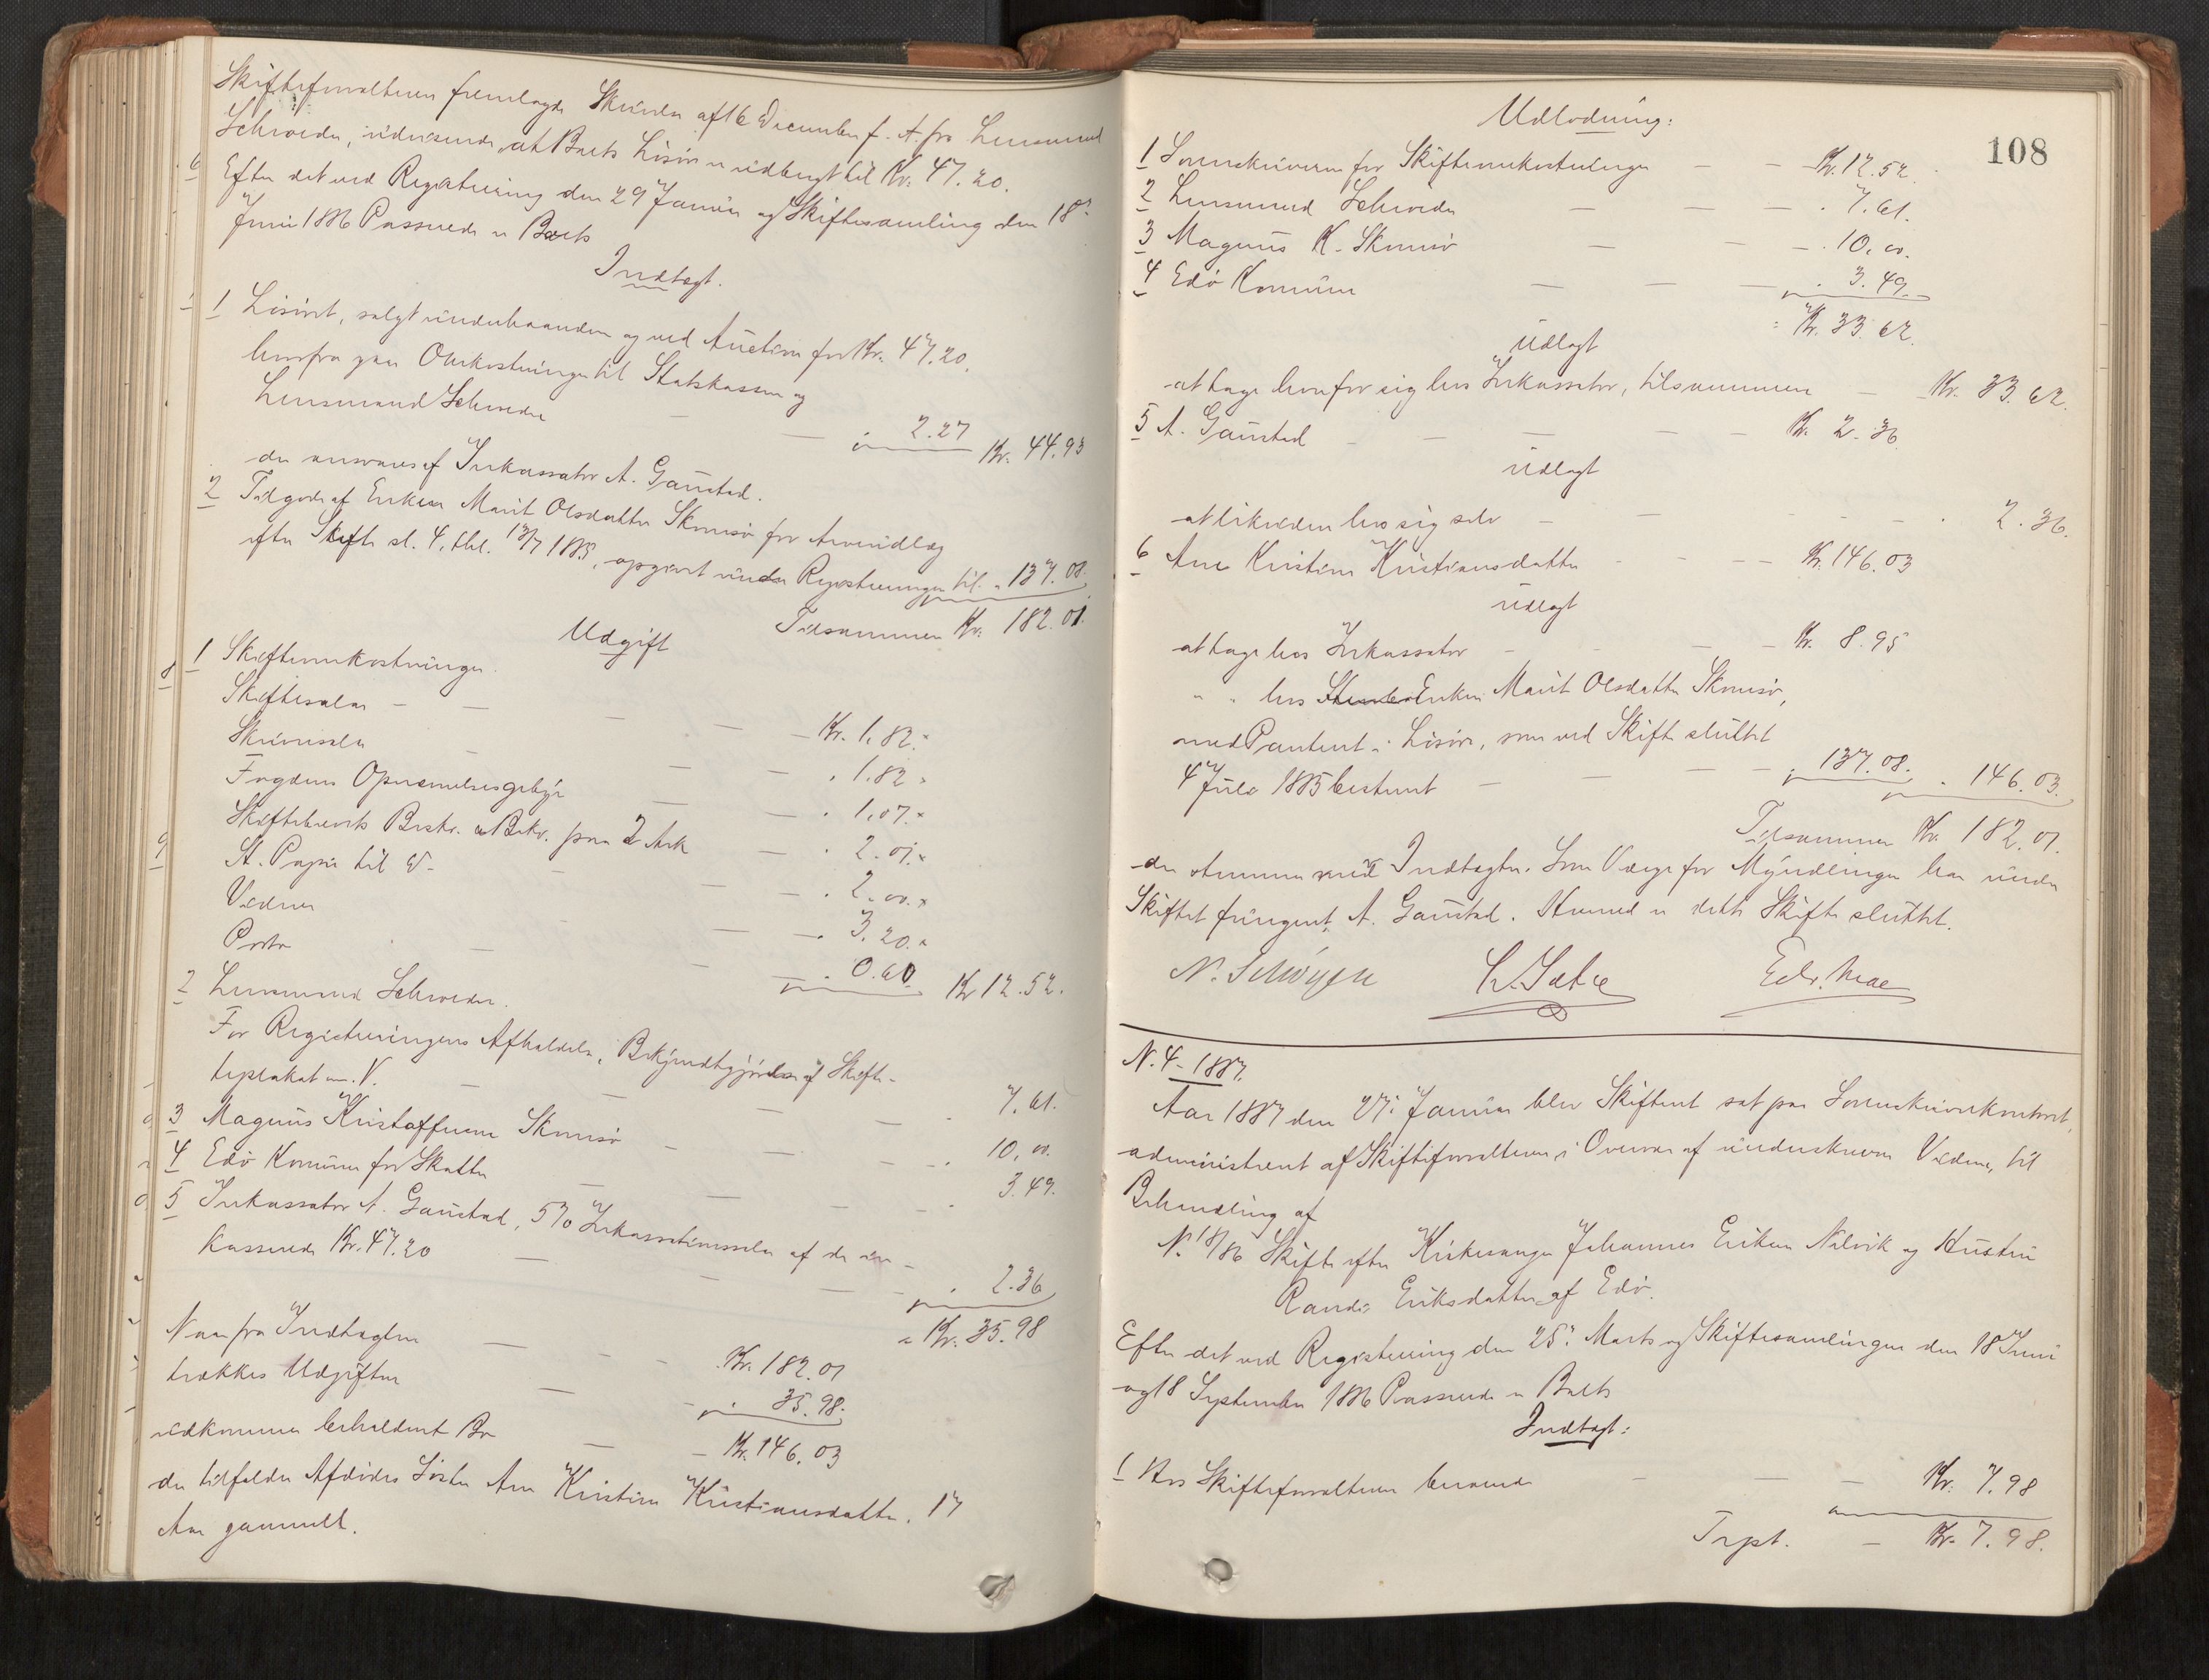 Skifteforvalteren fremlagde Skrivelse af 16 December f. A. fra Lensmand
Schrøeder, udvisende, at Boets Løsøre er udbragt til Kr. 47.20.
Efter det ved Registrering den 29 Januar og Skiftesamling den 18de
Juni 1886 Passerede er Boets
Indtægt.
1 Løsøret, solgt underhaanden og ved Auction for Kr. 47.20.
hvorfra gaar Omkostninger til Statskassen og
Lensmand Schrøeder — " 2.27 Kr. 44.93
der ansvares af Inkassator A. Gaustad.
2 Tilgode af Enken Marit Olsdatter Skomsø for Arveudlæg
efter Skifte sl. 4, thl. 13/7 1885, opgivet under Registreringen til " 137.08.
Tilsammen Kr. 182.01.
Udgift
1 Skifteomkostninger.
Skiftesalær — Kr. 1.82.
Skriversalær — " 1.82.
Fogdens Opnævnelsesgebyr — " 1.07.
Skiftebrevets Beskr. & Bekr. paa 2 Ark — " 2.01.
St. Papir til d° — " 2.00.
Vidner — " 3.20.
Porto — " 0.60. Kr 12.52.
2 Lensmand Schrøeder.
For Registreringens Afholdelse, Bekjendtgjørelse af Skif-
teplakat m. V. — " 7.61.
3 Magnus Kristoffersen Skomsø — " 10.00.
4 Edø Komune for Skatter — " 3.49.
5 Inkassator A. Gaustad, 5% Inkassationssalær af de in-
kasserede Kr. 47.20 — " 2.36
= Kr. 35.98
Naar fra Indtægten — Kr. 182.01
trækkes Udgiften — " 35.98.
udkommer beholdent Bo — Kr. 146.03
der tilfalder Afdødes Søster Ane Kristine Kristiansdatter, 17
Aar gammel.
108
Udlodning:
1 Sorenskriveren for Skifteomkostninger — Kr. 12.52.
2 Lensmand Schrøeder — " 7.61.
3 Magnus K. Skomsø — " 10.00.
4 Edø Komune — " 3.49.
= Kr. 33.62.
Udlagt
at tage hver for sig hos Inkassator, tilsammen — Kr. 33.62.
5 A. Gaustad — Kr. 2.36
Udlagt
at likvidere hos sig selv — " 2.36.
6 Ane Kristine Kristiansdatter — Kr. 146.03
Udlagt
at tage hos Inkassator — Kr. 8.95
" " hos Enken Marit Olsdatter Skomsø,
med Panteret i Løsøre, som ved Skifte sluttet
4 Juli 1885 bestemt — " 137.08. " 146.03.
Tilsammen Kr. 182.01.
der stemmer med Indtægten. Som Værge for Myndlingen har under
Skiftet fungeret A. Gaustad. Hermed er dette Skifte sluttet.
Edv. Moe
N. 4 - 1887.
Aar 1887 den 27: Januar blev Skifteret sat paa Sorenskriverkontoret,
administreret af Skifteforvalteren i Overvær af underskrevne Vidner, til
Behandling af
N. 18/86 Skifte efter Kirkesanger Johannes Eriksen Nalvik og Hustru
Randi Eriksdatter af Edø.
Efter det ved Registrering den 25: Marts og Skiftesamlingen den 18 Juni
og 18 September 1886 Passerede er Boets
Indtægt:
1 Hos Skifteforvalteren beroende — Kr. 7.98
Trpt. — Kr. 7.98.